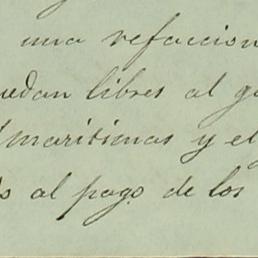 una refaccion
uedan libres al g
maritimas y el
o al pago de los